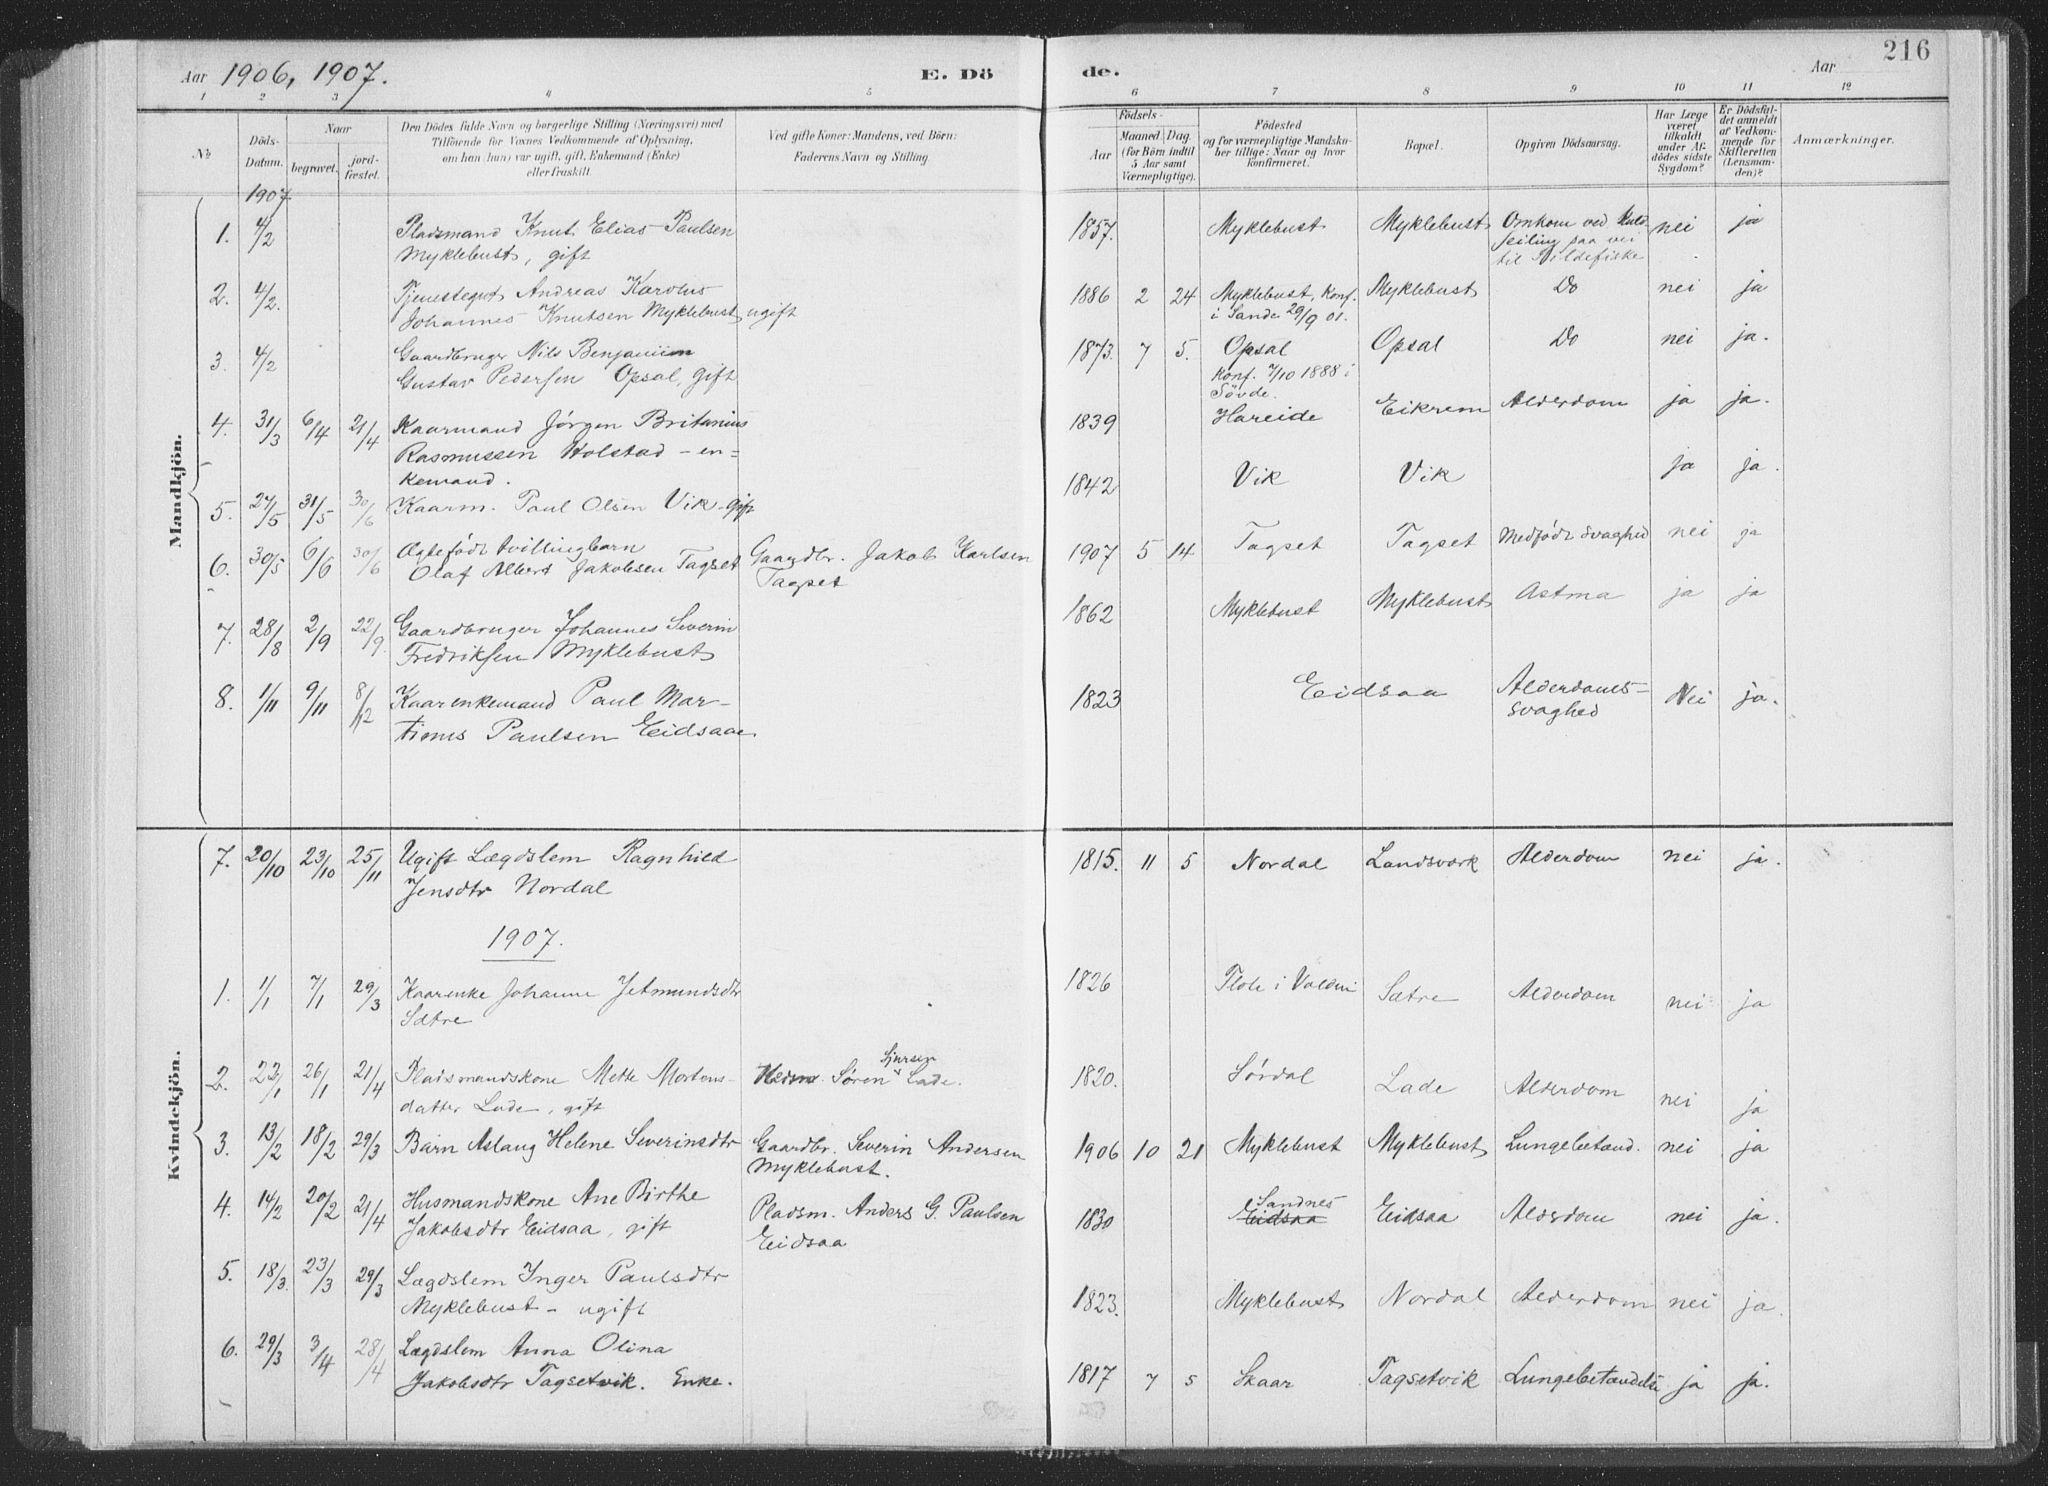 216
Aar 1906, 1907. E. Dö de. Aar
1 2 3 4 5 6 7 8 9 10 11 12
No
Döds-Datum.
Naar
begravet.
jord-fæstet.
Den Dödes fulde Navn og borgerlige Stilling (Næringsvei) med
Tilföiende for Voxnes Vedkommende af Oplysning,
om han (hun) var ugift, gift, Enkemand (Enke)
eller fraskilt.
Ved gifte Koner: Mandens, ved Börn:
Faderens Navn og Stilling
Födsels-
Aar
Maaned Dag
(for Börn indtil
5 Aar samt
Værnepligtige).
Födested
og for værnepligtige Mandskaber tillige: Naar og hvor
konfirmeret.
Bopæl.
Opgiven Dödsaarsag.
Har Læge
været
tilkaldt
under Afdödes sidste
Sygdom?
Er Dödsfaldet anmeldt
af Vedkommende for
Skifteretten
(Lensmanden)?
Anmærkninger.
Mandkjön.
1907
1. 4/2 Pladsmand Knut Elias Paulsen 1857. Myklebust Myklebust Omkom ved Kuld- nei ja
Myklebust, gift seiling paa vei
til Sildefiske
2. 4/2. Tjenestegut Andreas Karolus 1886 2 24 Myklebust, Konf. Myklebust Do nei ja
Johannes Knutsen Myklebust, ugift i Sande 29/9 01.
3. 4/2 Gaardbruger Nils Benjamin 1873. 7 5. Opsal Opsal Do nei ja.
Gustav Pedersen Opsal, gift Konf. 7/10 1888 i
Sövde.
4. 31/3 6/4 21/4 Kaarmand Jörgen Britanius 1839 Hareide Eikrem Alderdom ja ja.
Rasmussen Holstad - en-
kemand.
5. 27/5 31/5 30/6 Kaarm. Paul Olsen Vik - gift 1842 Vik Vik ja ja.
6. 30/5 6/6 30/6 Ægtefødt tvillingbarn Gaardbr. Jakob Karlsen 1907 5 14 Tagset Tagset Medfødt Svaghed nei ja
Olaf Albert Jakobsen Tagset Tagset
7. 28/8 2/9 22/9. Gaardbruger Johannes Severin 1862 Myklebust Myklebust Astma ja ja
Fredriksen Myklebust
8. 1/11 9/11 8/12 Kaarenkemand Paul Mar- 1823 Eidsaa Alderdoms- Nei ja.
tinus Paulsen Eidsaa. svaghed
Kvindekjön.
7. 20/10 23/10 25/11 Ugift Lægdslem Ragnhild 1815. 11 5 Nordal Landsverk Alderdom nei ja.
Jensdtr Nordal
1907.
1. 1/1 7/1 29/3 Kaarenke Johanne Jetmundsdtr 1826 Flote i Volden Sætre Alderdom nei ja
Sætre
2. 22/1 26/1 21/4 Pladsmandskone Mette Mortens- Søren Sjursen Lade. 1820. Sørdal Lade Alderdom nei ja
datter Lade, gift
3. 13/2 18/2 29/3 Barn Aslaug Helene Severinsdtr Gaardbr. Severin Andersen 1906 10 21 Myklebust Myklebust Lungebetænd. nei ja
Myklebust.
4. 14/2 20/2 21/4 Husmandskone Ane Birthe Pladsm. Anders G. Paulsen 1830 Eidsaa Sandnes Eidsaa Alderdom nei ja.
Jakobsdtr Eidsaa, gift Eidsaa
5. 18/3. 23/3 29/3 Lægdslem Inger Paulsdtr 1823. Myklebust Nordal Alderdom nei ja.
Myklebust - ugift
6. 29/3 3/4 28/4 Lægdslem Anna Olina 1817 7 5 Skaar Tagsetvik Lungebetændelse ja ja.
Jakobsdtr Tagsetvik. Enke.